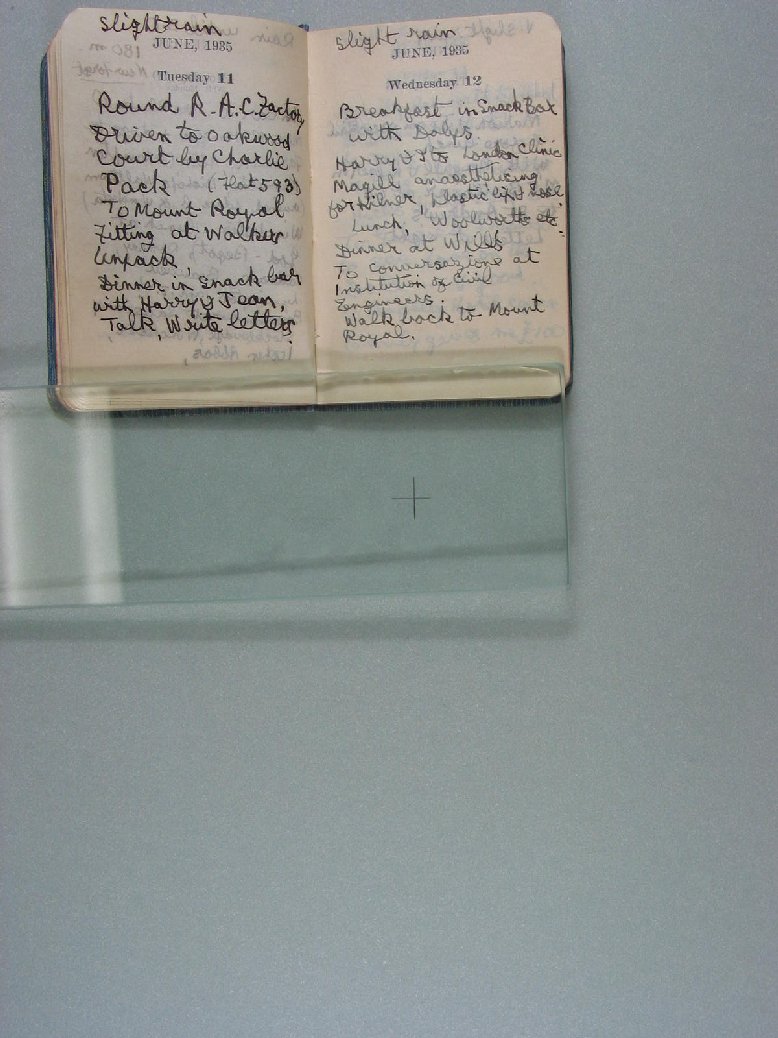 Slight rain
JUNE, 1935
Tuesday 11
Round R.A.C. Factory
Driven to Oakwood
Court by Charlie
Pack (Flat 593)
To Mount Royal
Fitting at Walker
Unpack,
Dinner in snack bar
with Harry & Jean,
Talk, Write letters.
Slight rain
JUNE, 1935
Wednesday 12
Breakfast in Snack Bar
with Dalys.
Harry & I to London Clinic
Magill anaesthetizing
for Kilner, Plastic lip & nose
Lunch, Woolworths etc.
Dinner at Wills
To conversazione at
Institution of Civil
Engineers.
Walk back to Mount
Royal.